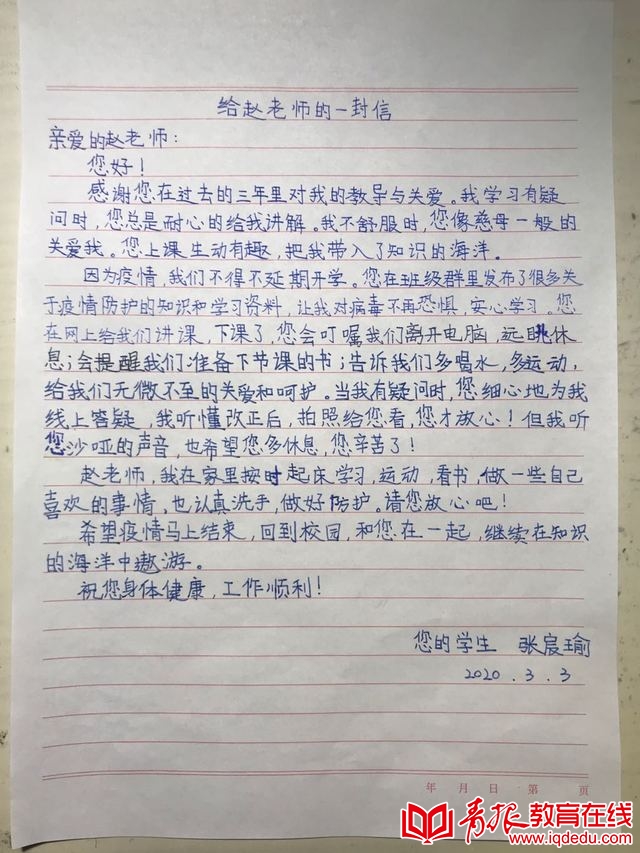 给赵老师的一封信
亲爱的赵老师：
您好！
感谢您在过去的三年里对我的教导与关爱。我学习有疑
问时，您总是耐心的给我讲解。我不舒服时，您像慈母一般的
关爱我。您上课生动有趣，把我带入了知识的海洋。
因为疫情，我们不得不延期开学。您在班级群里发布了很多关
于疫情防护的知识和学习资料，让我对病毒不再恐惧，安心学习。您
在网上给我们讲课，下课了，您会叮嘱我们离开电脑，远眺休
息；会提醒我们准备下节课的书；告诉我们多喝水，多运动，
给我们无微不至的关爱和呵护。当我有疑问时，您细心地为我
线上答疑，我听懂改正后，拍照给您看，您才放心！但我听
您沙哑的声音，也希望您多休息，您辛苦了！
赵老师，我在家里按时起床学习，运动，看书，做一些自己
喜欢的事情，也认真洗手，做好防护。请您放心吧！
希望疫情马上结束，回到校园，和您在一起，继续在知识
的海洋中遨游。
祝您身体健康，工作顺利！
您的学生 张宸瑜
2020.3.3
年 月 日 第 页
青报教育在线
www.iqdedu.com